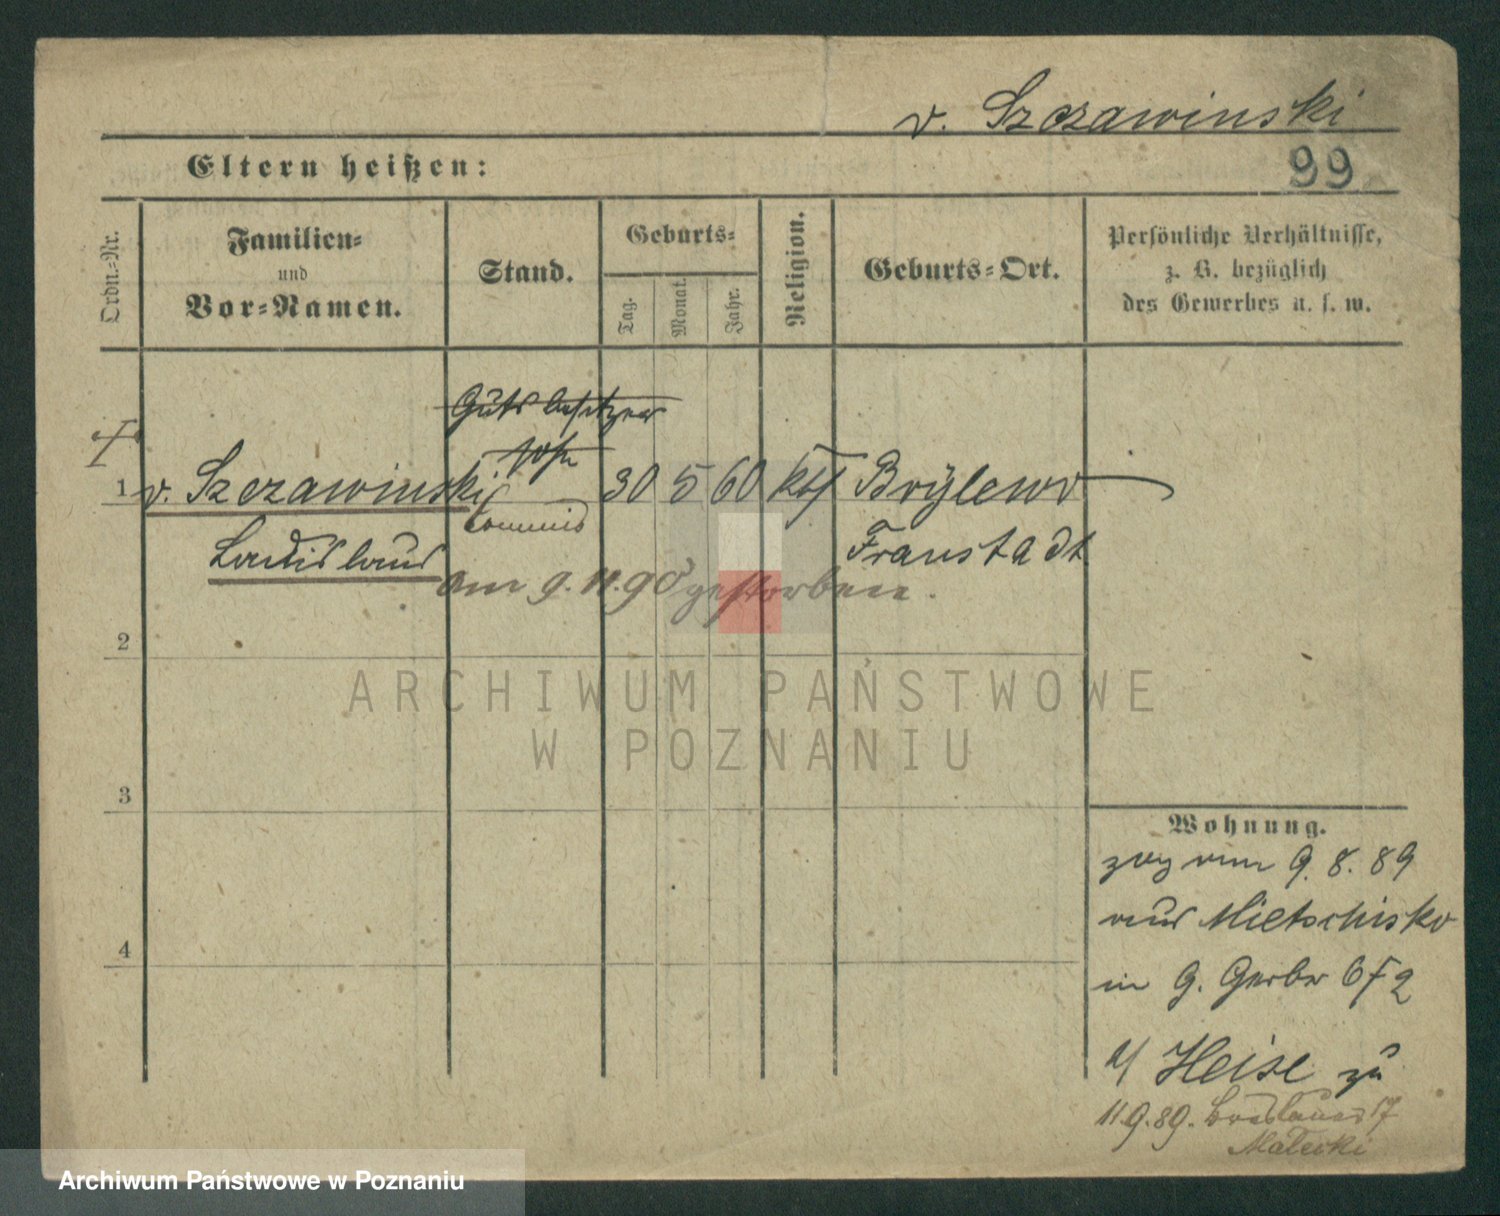 v. Szczawinski
Eltern heißen:
99
Ordn.-Nr.
Familien-
und
Vor-Namen.
Stand.
Geburts-
Tag.
Monat.
Jahr.
Religion.
Geburts-Ort.
Persönliche Verhältnisse,
z. B. bezüglich
des Gewerbes u. s. w.
Gutsbesitzer
sohn
1 v. Szczawinski 30 5 60 kth Brylewo
Commis
Ladislaus Fraustadt
am 9. 11. 90 gestorben.
2
ARCHIWUM PAŃSTWOWE
W POZNANIU
3
Wohnung.
zog am 9. 8. 89
aus Mietschisko
in G. Gerbr 6
4
b/ Heise zu
11.9.89. Breslauer 17
Malecki
Archiwum Państwowe w Poznaniu